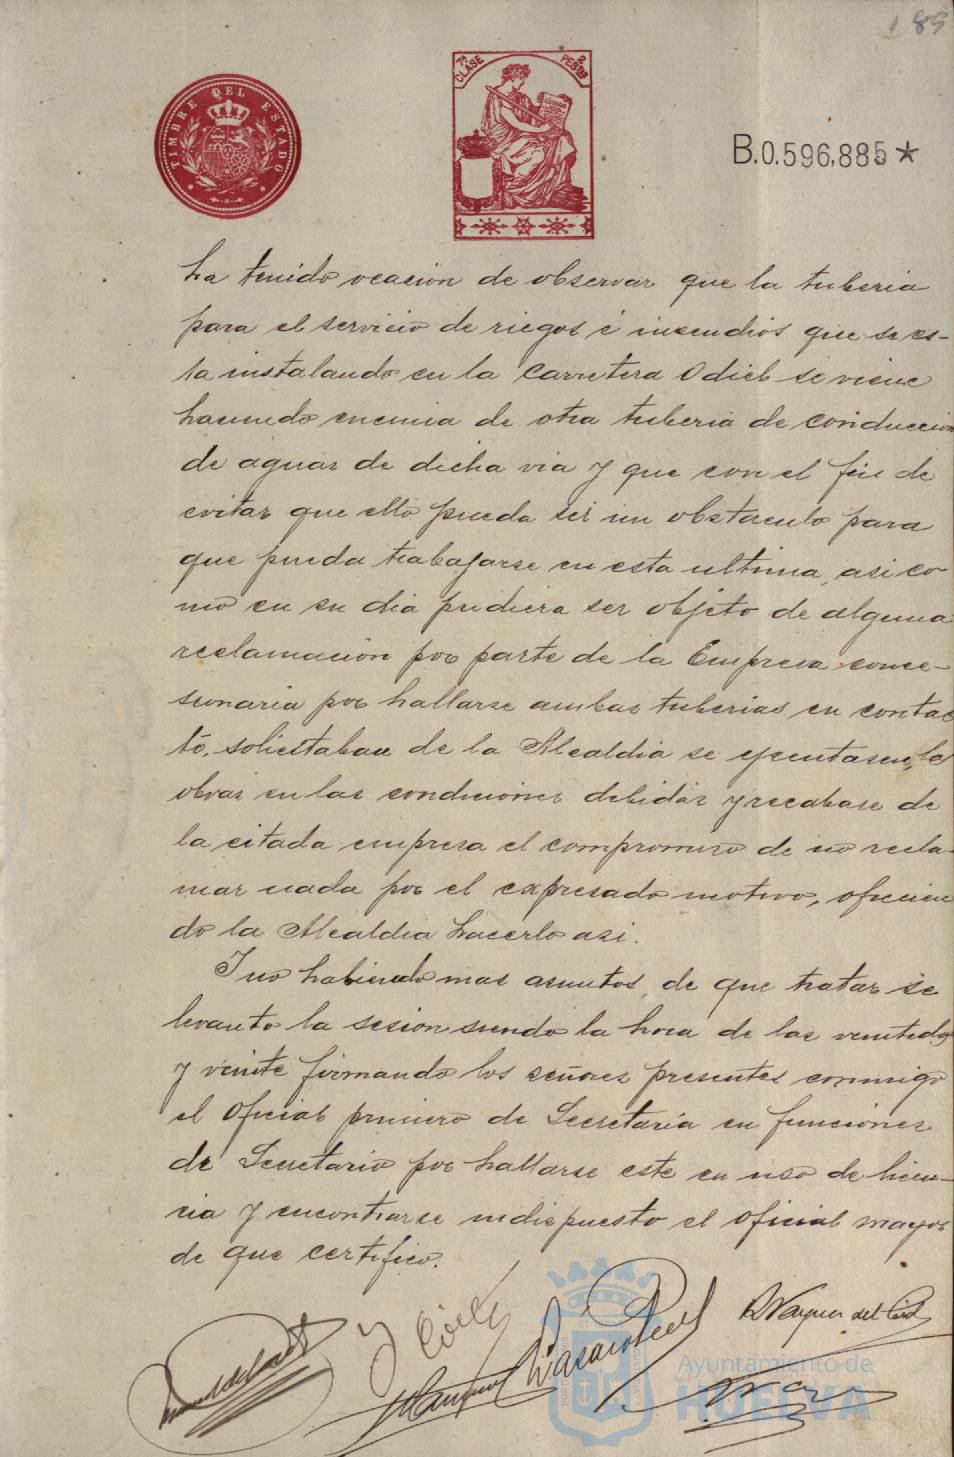 189
TIMBRE DEL ESTADO
7ª CLASE
2 PESETAS
B.0.596,885*
ha tenido ocasion de observar que la tuberia
para el servicio de riegos é incendios que se es-
ta instalando en la carretera Odiel se viene
haciendo encima de otra tuberia de conduccion
de aguas de dicha via y que con el fin de
evitar que ello pueda ser un obstaculo para
que pueda trabajarse en esta ultima, asi co-
mo en su dia pudiera ser objeto de alguna
reclamación por parte de la Empresa conce-
sionaria por hallarse ambas tuberias en contac
to, solicitaban de la Alcaldia se ejecutasen las
obras en las condiciones debidas y recabase de
la citada empresa el compromiso de no recla-
mar nada por el expresado motivo, ofrecien
do la Alcaldia hacerlo asi.
Y no habiendo mas asuntos de que tratar se
levanto la sesion siendo la hora de las veintidos
y veinte firmando los señores presentes conmigo
el Oficial primero de Secretaría en funciones
de Secretario por hallarse este en uso de licen-
cia y encontrarse indispuesto el oficial mayor
de que certifico.
Ayuntamiento de
HUELVA